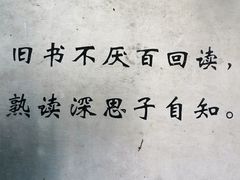 旧书不厌百回读，
熟读深思子自知。